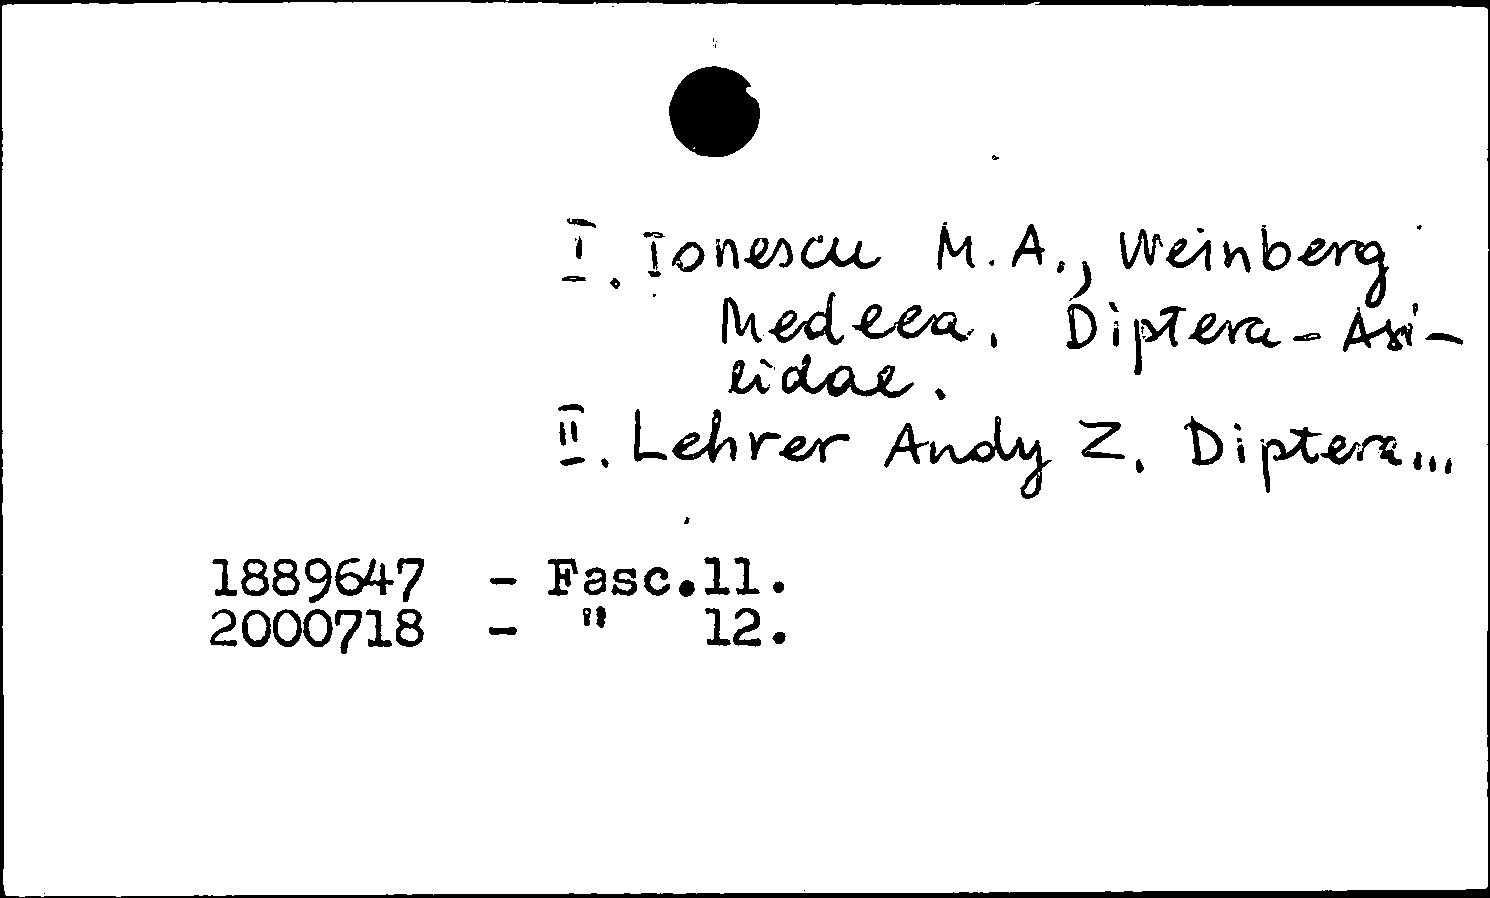 I. Ionescu M.A., Weinberg
Medeea. Diptera - Asi-
lidae.
II. Lehrer Andy Z. Diptera...
1889647 - Fasc.11.
2000718 - " 12.